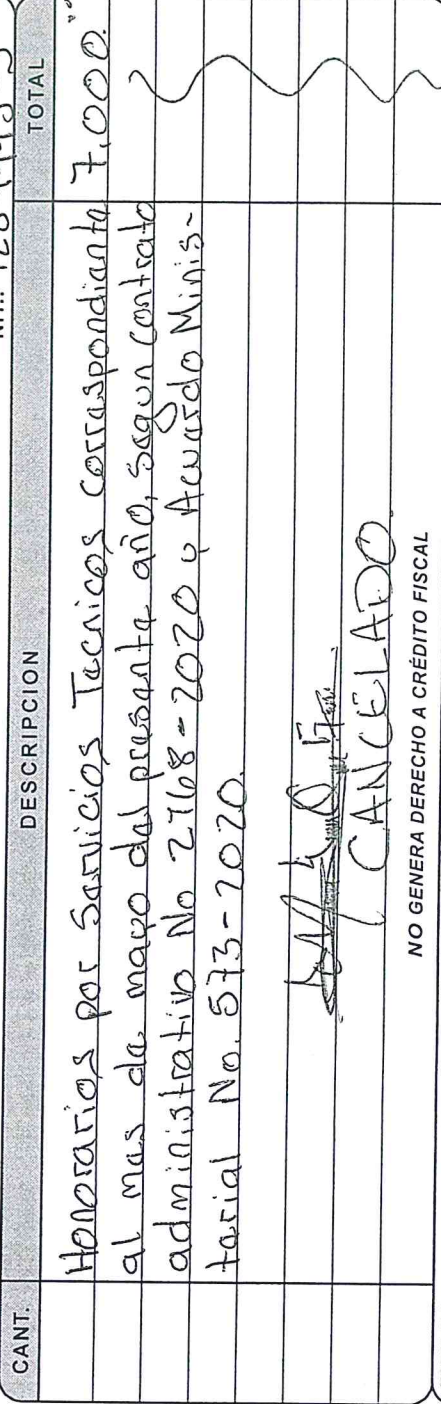 CANT. DESCRIPCION TOTAL
Honorarios por Servicios Tecnicos correspondiente 7,000.
al mes de mayo del presente año, segun contrato
administrativo No 2768-2020 y Acuerdo Minis-
terial No. 573-2020.
CANCELADO.
NO GENERA DERECHO A CRÉDITO FISCAL